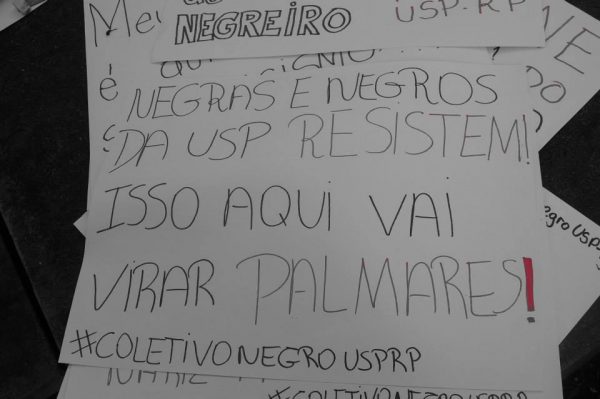 NEGREIRO
USP-RP
Meu
é
NEGRAS E NEGROS
DA USP RESISTEM!
ISSO AQUI VAI
VIRAR PALMARES!
#COLETIVONEGROUSPRP
#COLETIVONEGROUSPRP